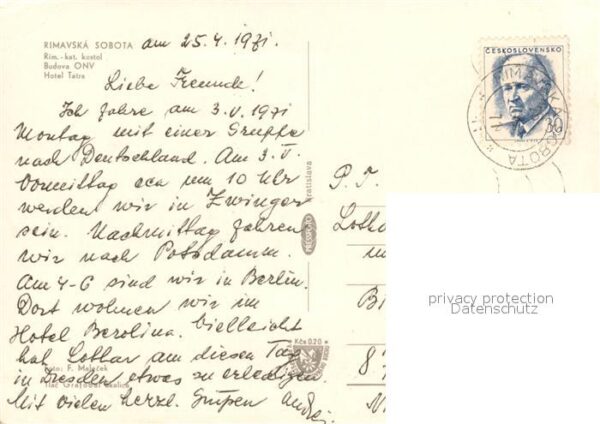 RIMAVSKÁ SOBOTA
Rim.-kat. kostol
Budova ONV
Hotel Tatra
am 25.4.1971.
Liebe Freunde!
Ich fahre am 3.V.1971
Montag mit einer Gruppe
nach Deutschland. Am 3.V.
Vormittag cca um 10 Uhr
werden wir in Zwinger
sein. Nachmittag fahren
wir nach Potsdamm.
Am 4-6 sind wir in Berlin.
Dort wohnen wir im
Hotel Berolina. Vielleicht
hat Lothar am diesen Tag
in Dresden etwas zu erledigen.
Mit vielen herzl. Grüpen Andrej
Foto: F. Maleček
PRESSFOTO
Bratislava
Kčs 0,20
ČESKOSLOVENSKO
30
RIMAVSKÁ SOBOTA
P. T.
Lotha
B
8
privacy protection
Datenschutz